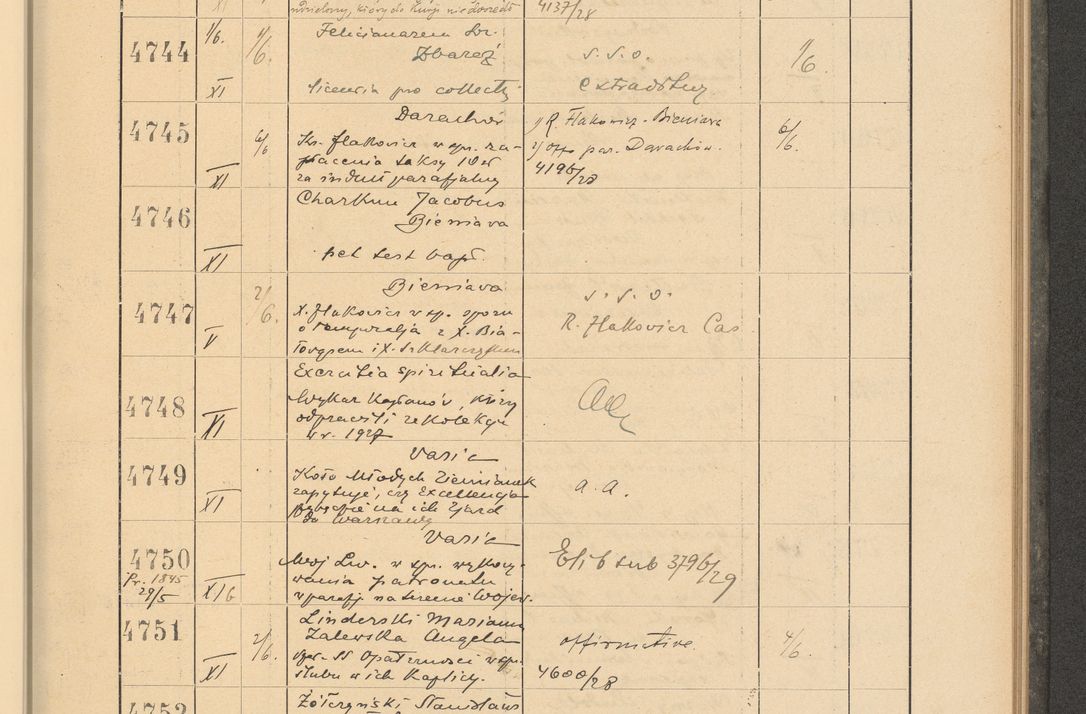 XI
udzielony, który do Kurji nie doszedł
4137/28
4744
1/6.
4/6.
Felicianarem
Zbaraż
s. s. o.
4/6.
XI
licencia pro collectis
extraditur
4745
Darachów
6/6
Ks. Hakowicz w sp. za-
płacenia taksy 10 zł
XI
za indult parafjalny
1/ R. Hakowicz - Bieniawa
2/ Offo par. Darachów.
4196/28
6/6.
4746
Charkun Jacobus
Bieniava
XI
pet test bapt.
4747
2/6.
Bieniava
X. Hakowicz w sp. sporu
o temporalja z X. Bia-
V
łowąsem i X. Szklarczykiem
s. s. o.
R. Hakovicz Cas
4748
Exercitia spiritualia
Wykaz Kapłanów, którzy
odprawili rekolekcje
XI
w r. 1927
4749
Varia
Koło Młodych Ziemianek
zapytuje, czy Excellencja
XI
na ich Zjazd
do Warszawy
a. a.
4750
Pr. 1845
29/5
Varia
Woj. Lw. w sp. wykony-
wania patronatu
XI b
w parafji na terenie Wojew.
Exhib sub 3796/29
4751
2/6.
Linderski Marianus
Zalewska Angela
Opatrzności w sp.
XI
ślubu w ich Kaplicy.
affirmative.
4600/28
4/6.
4752
Żółczyński Stanislaus